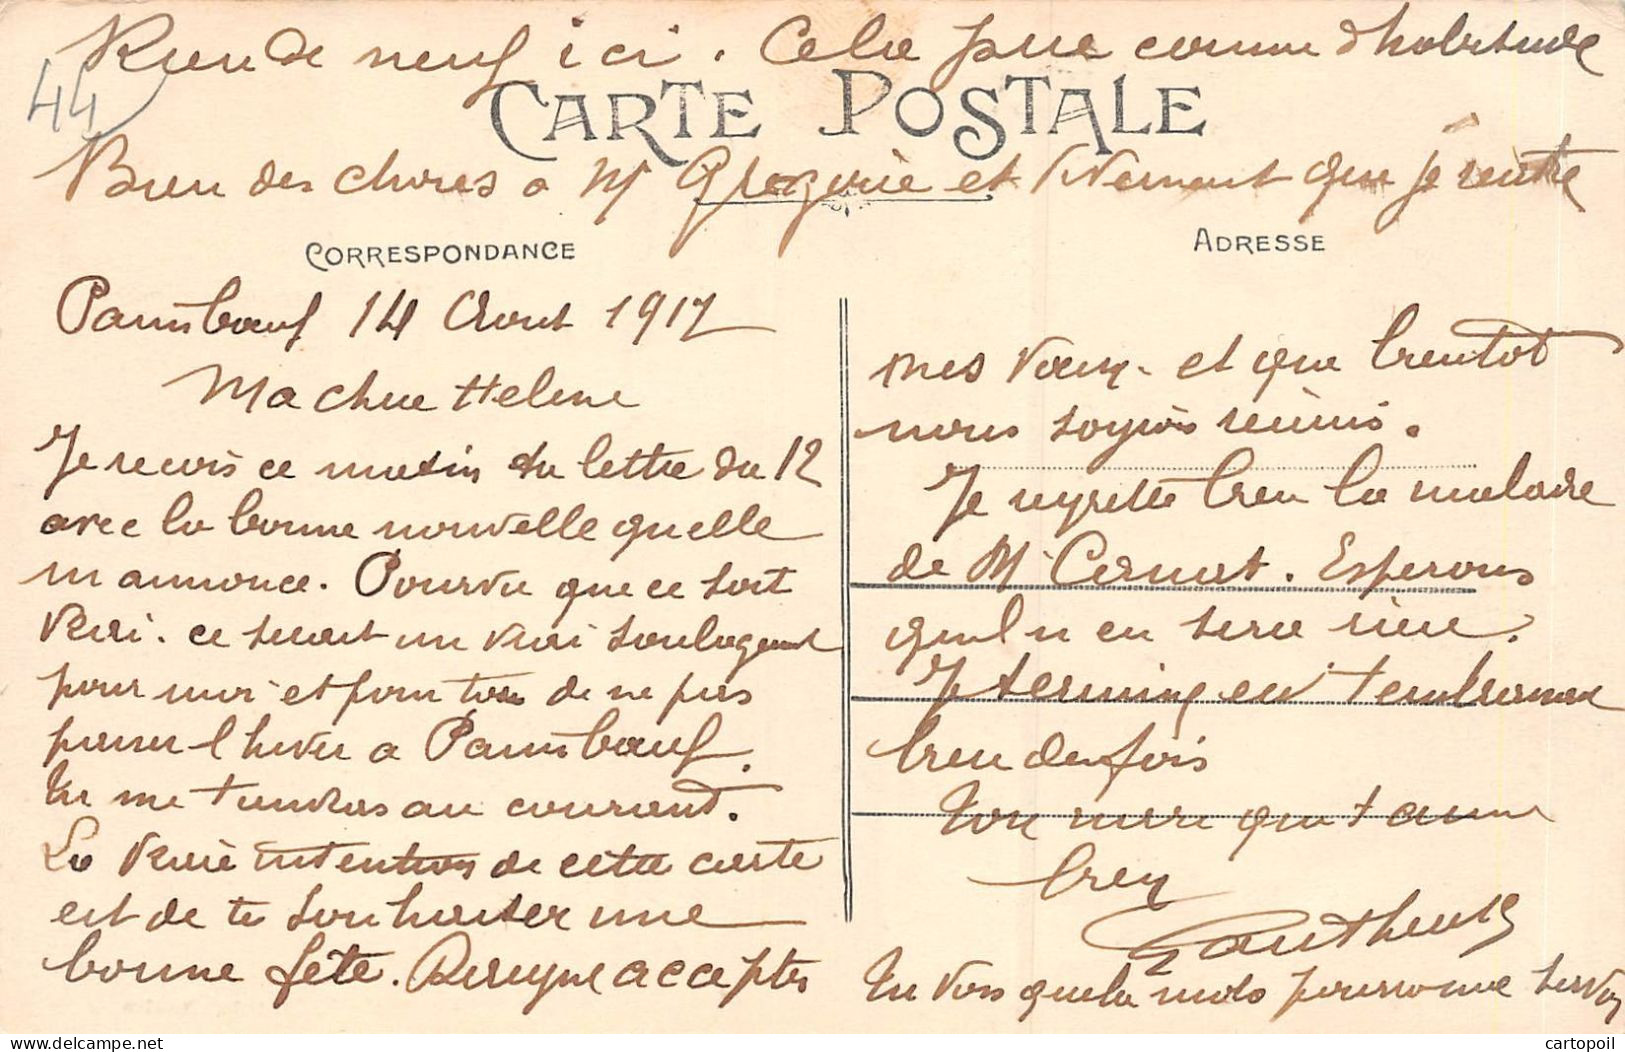 Rien de neuf ici. Cela pue comme d'habitude
44
CARTE POSTALE
Bien des choses à Mr Gregoire et Vivement que je rentre
CORRESPONDANCE
ADRESSE
Paimboeuf 14 Aout 1917
Ma chere Helene
Je recois ce matin ta lettre du 12
avec la bonne nouvelle quelle
m annonce. Pourvu que ce soit
vrai. ce serait un vrai soulagement
pour moi et pour tous de ne pas
passer l hiver a Paimboeuf.
Tu me tiendras au courant.
La vraie intention de cette carte
est de te souhaiter une
bonne fête. Acceptes
mes voeux. et que bientot
nous soyions réunis.
Je regrette bien la maladie
de Mr. Esperons
qu il n en sera rien.
Je termine en t embrassant
bien des fois
Ton qui t aime
bien
Tu vois que la
cartopoil